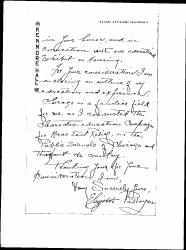 KENMORE HALL
in your house, and in
connection with our
exhibit on Housing.
For your consideration I am
enclosing an outline of my
education and experience.
Chicago is a familiar field
for me as I conducted the
education campaign
for Near East Relief, in the
Public Schools of Chicago and
throughout the country.
Thanking you for your
consideration, I am
Very Sincerely yours,
Elizabeth